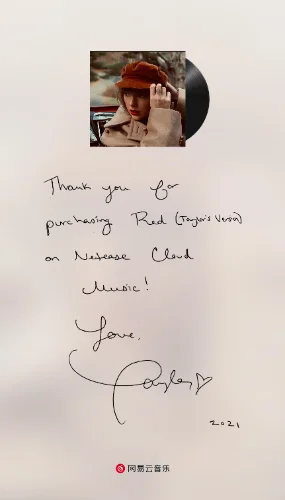 Thank you for
purchasing Red (Taylor's Version)
on Netease Cloud
Music!
Love,
Taylor
2021
网易云音乐